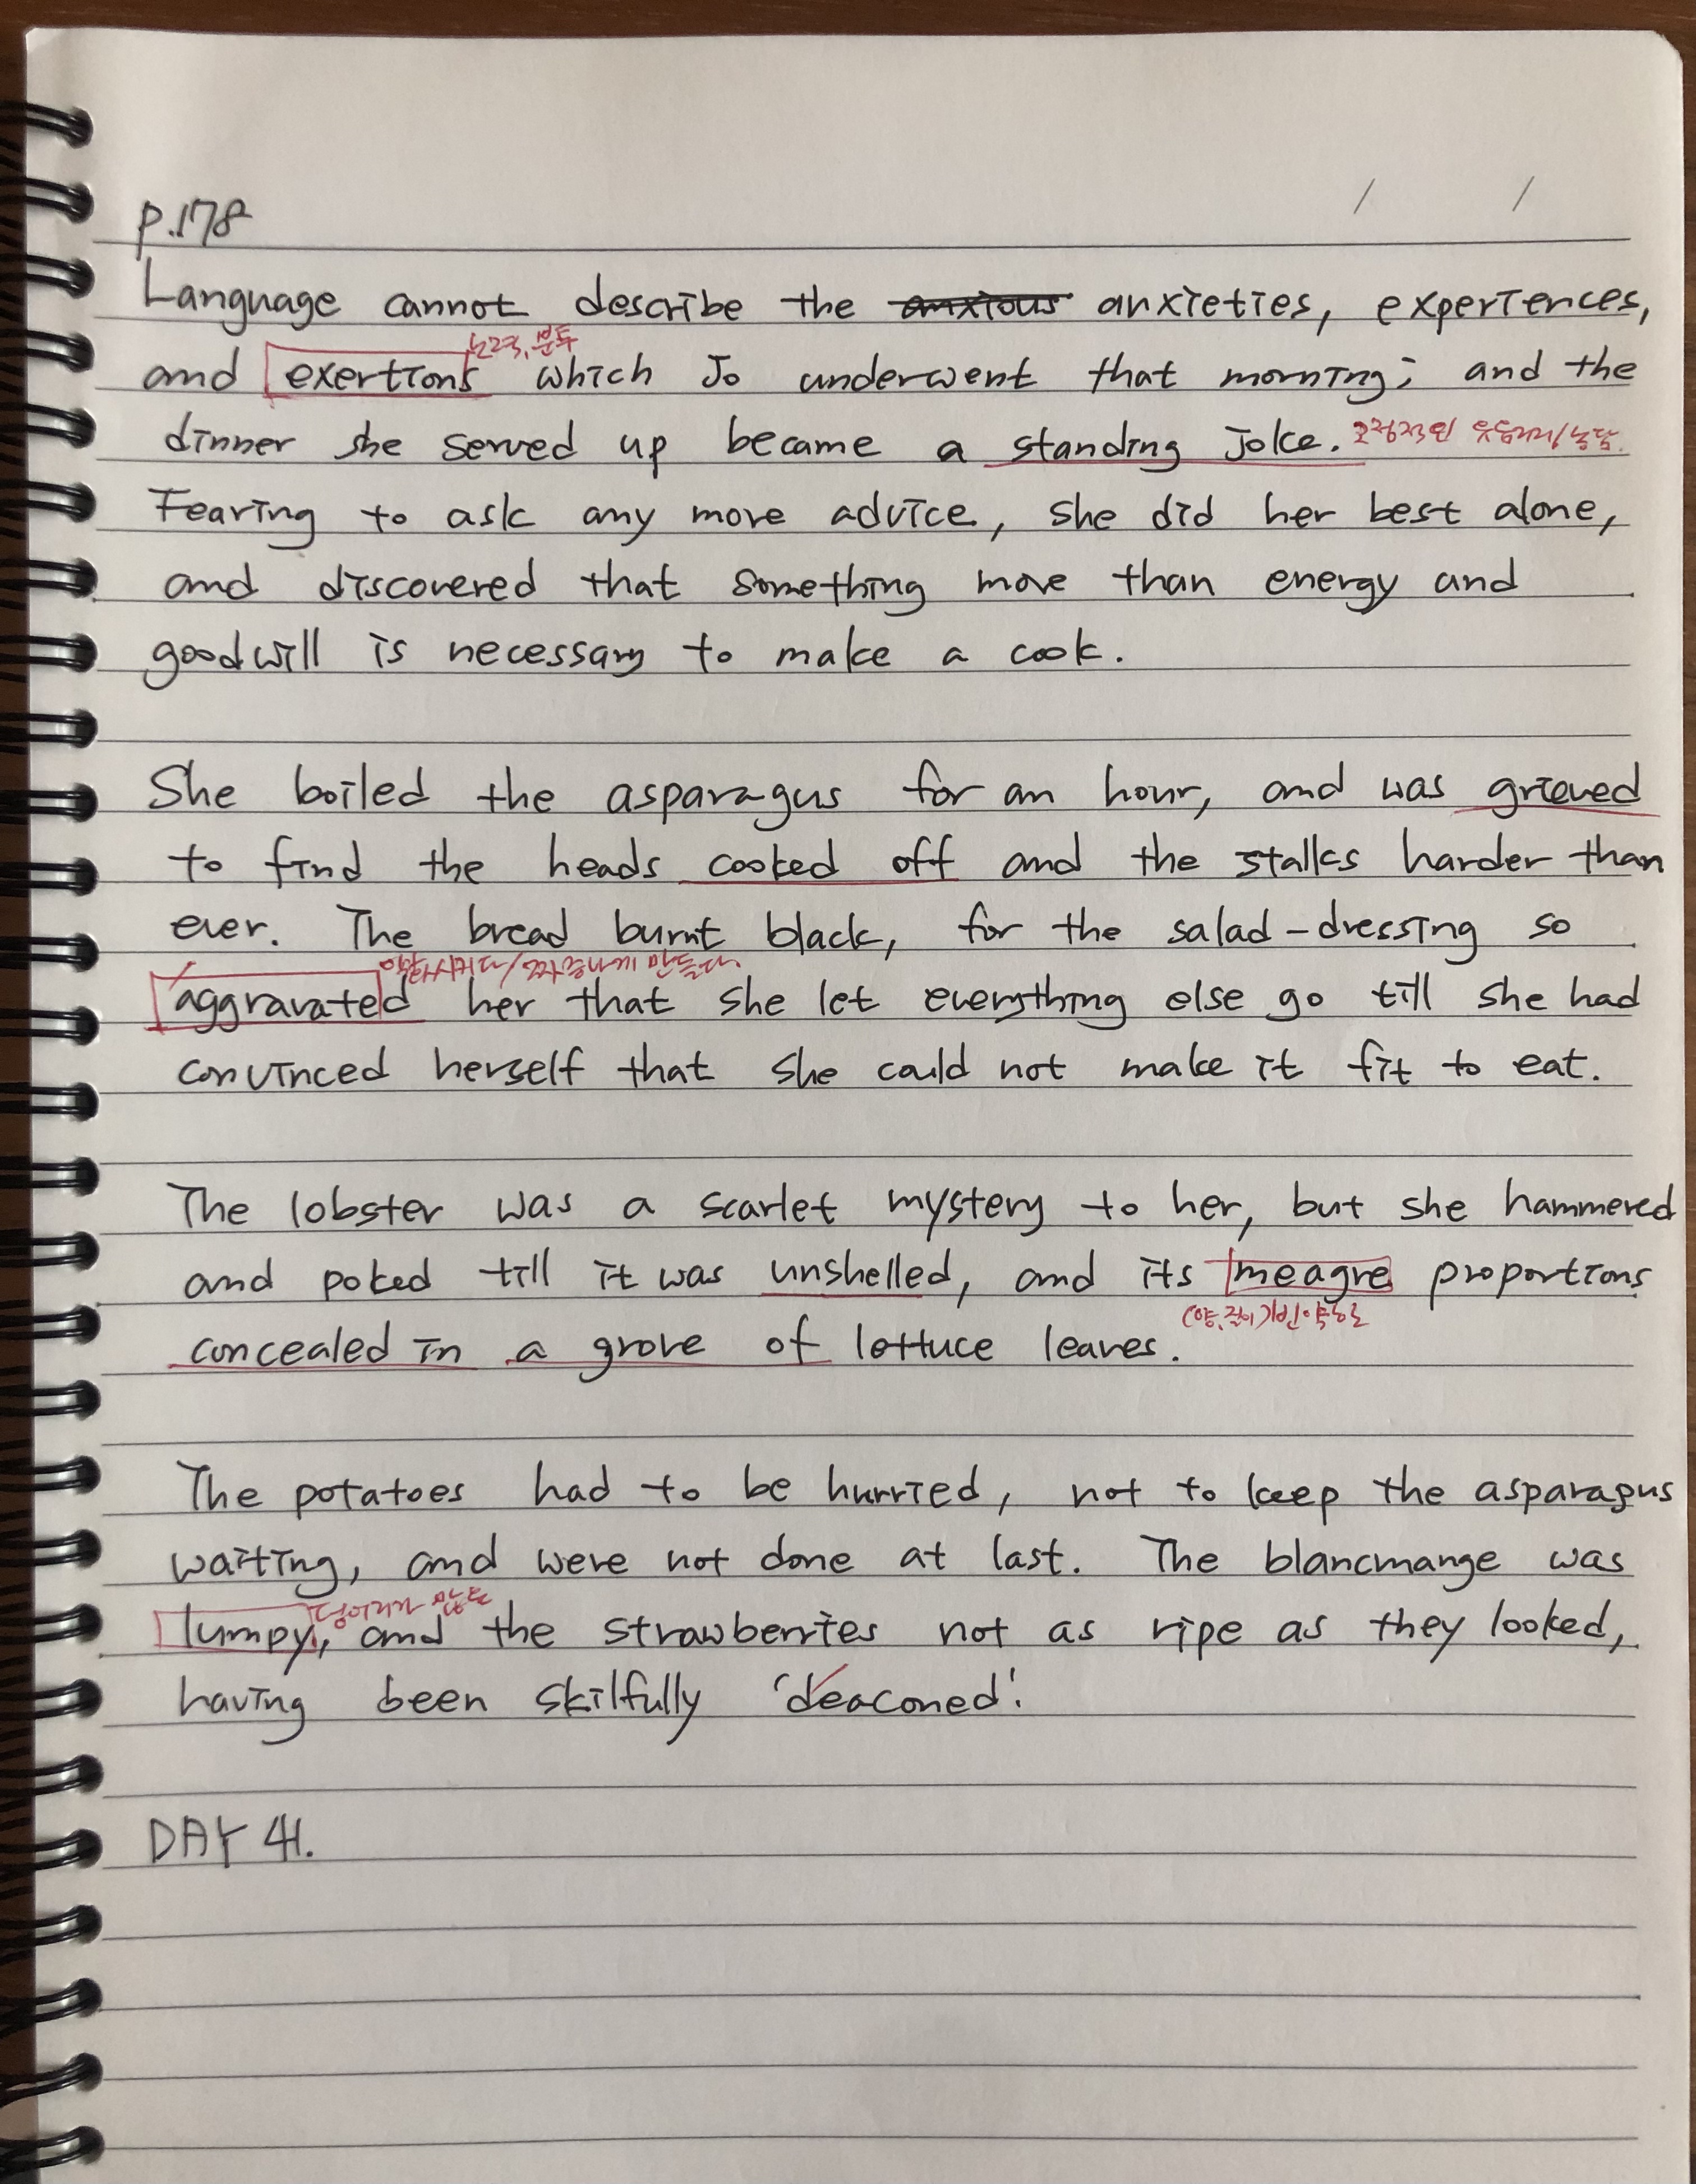 p.178
Language cannot describe the anxious anxieties, experiences,
노력, 분투
and exertions which Jo underwent that morning; and the
dinner she served up became a standing joke. 고정적인 웃음거리/농담.
Fearing to ask any more advice, she did her best alone,
and discovered that something more than energy and
goodwill is necessary to make a cook.
She boiled the asparagus for an hour, and was grieved
to find the heads cooked off and the stalks harder than
ever. The bread burnt black, for the salad-dressing so
악화시키다/짜증나게 만들다.
aggravated her that she let everything else go till she had
convinced herself that she could not make it fit to eat.
The lobster was a scarlet mystery to her, but she hammered
and poked till it was unshelled, and its meagre proportions
(양, 질이) 빈약한
concealed in a grove of lettuce leaves.
The potatoes had to be hurried, not to keep the asparagus
waiting, and were not done at last. The blancmange was
덩어리가 많은
lumpy, and the strawberries not as ripe as they looked,
having been skilfully 'deaconed'.
DAY 41.